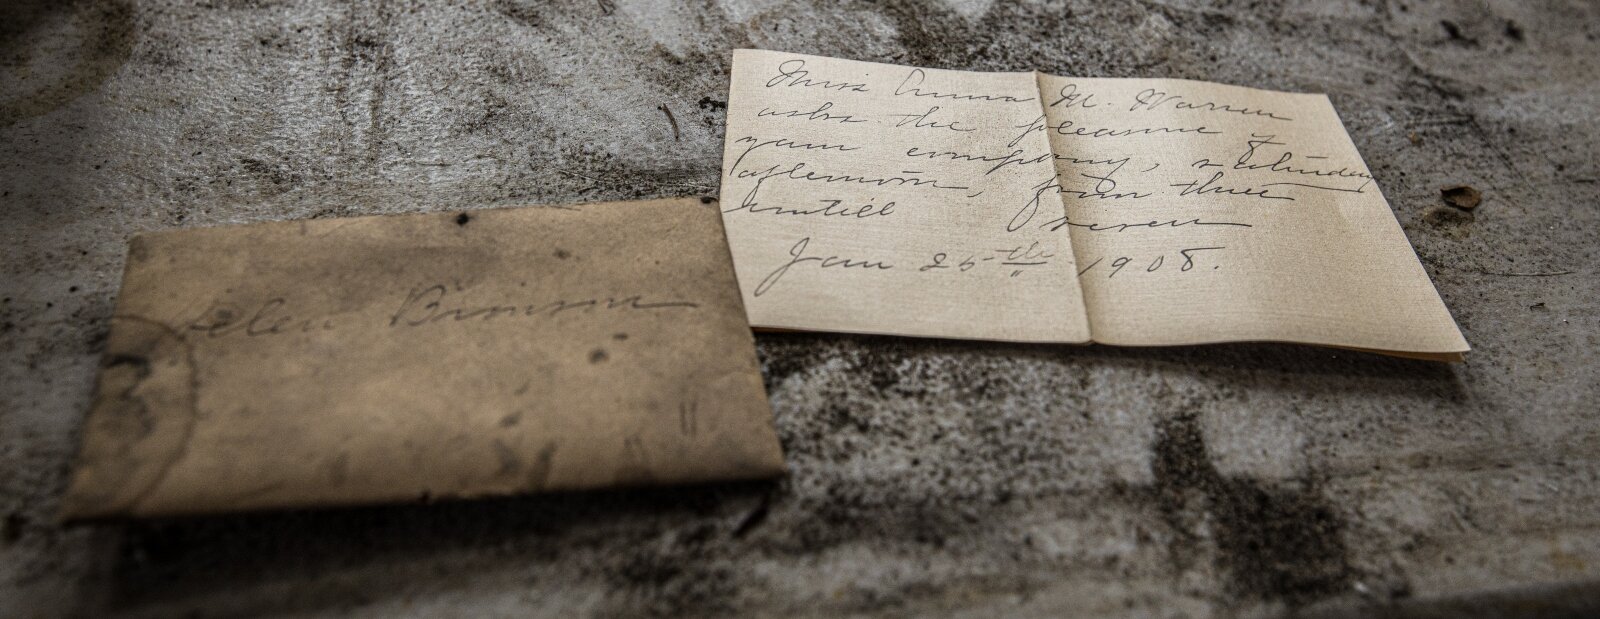 Helen Bronson
Miss Emma M. Warren
asks the pleasure of
your company, saturday
afternoon, from three
untill seven
Jan 25th 1908.